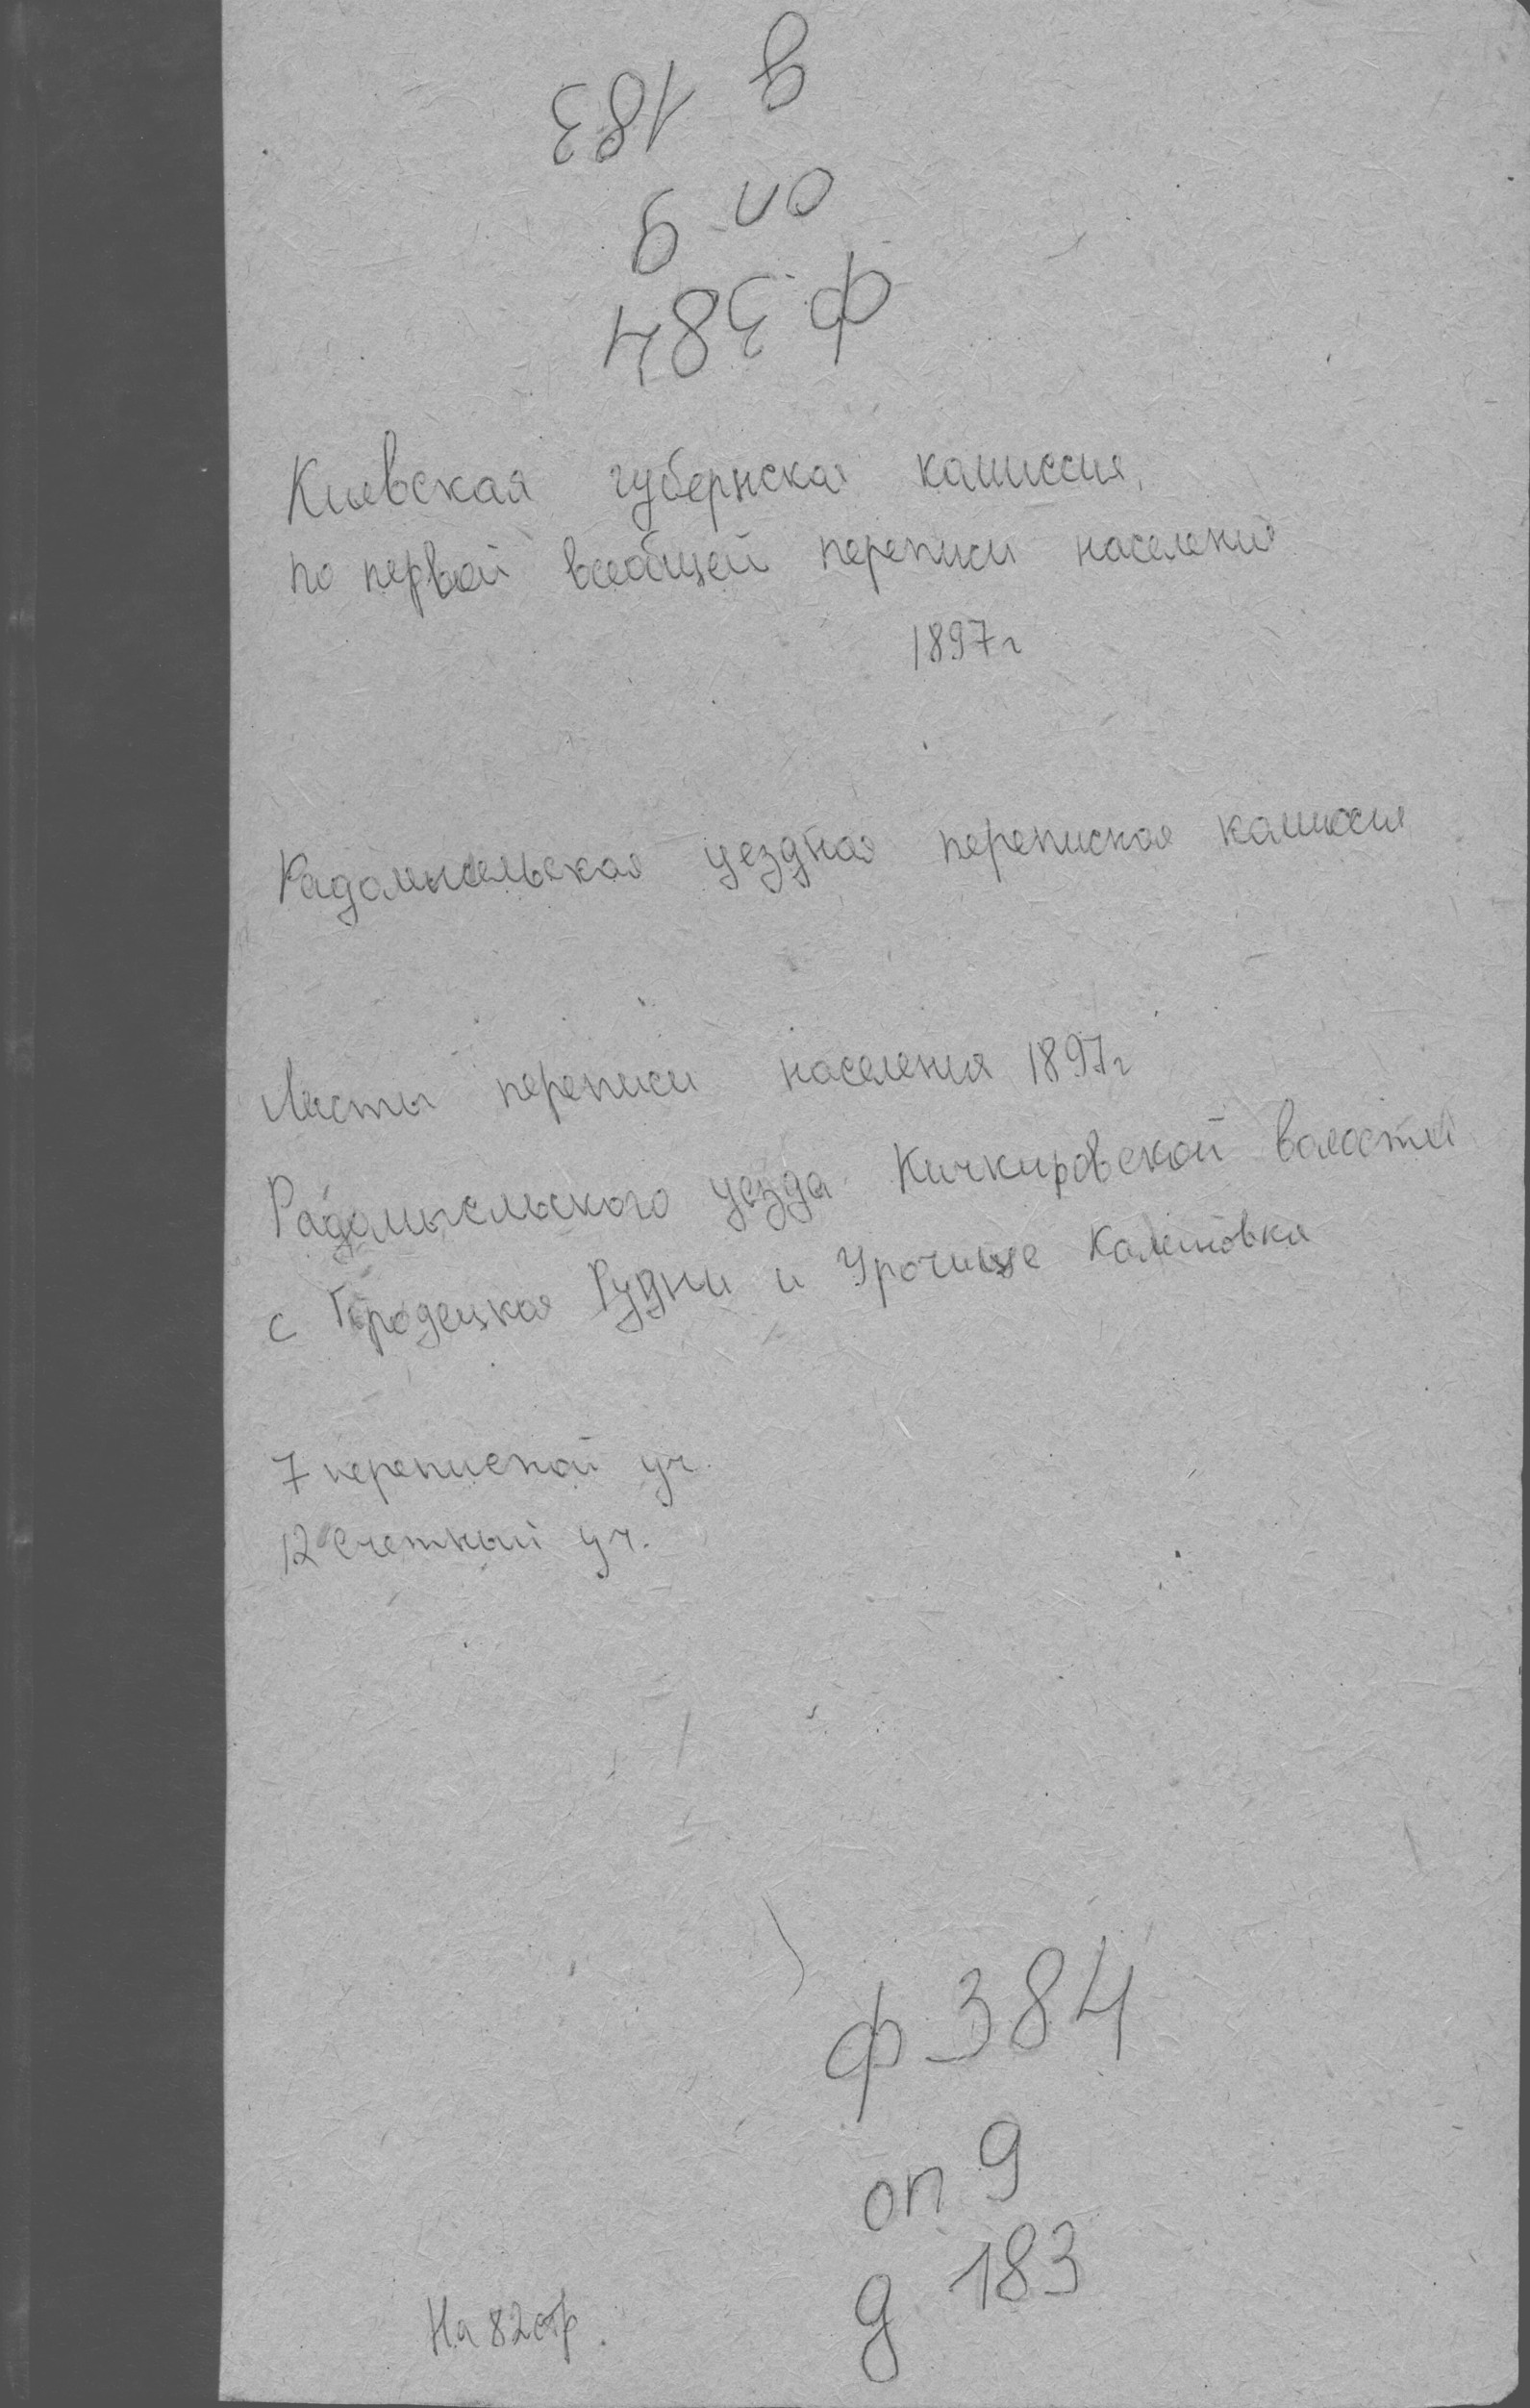 д 183
оп 9
ф. 384
Киевская губернская камиссия,
по первой всеобщей переписи населения
1897г
Радомысельская уездная переписная камиссия
Листы переписи населения 1897г
Радомысльского уезда Кичкировской воластей
с Городецкая Рудни и Урочище Калиновка
7 переписной уч.
12 Счетный уч.
ф 384
оп 9
д 183
На 82 стр.